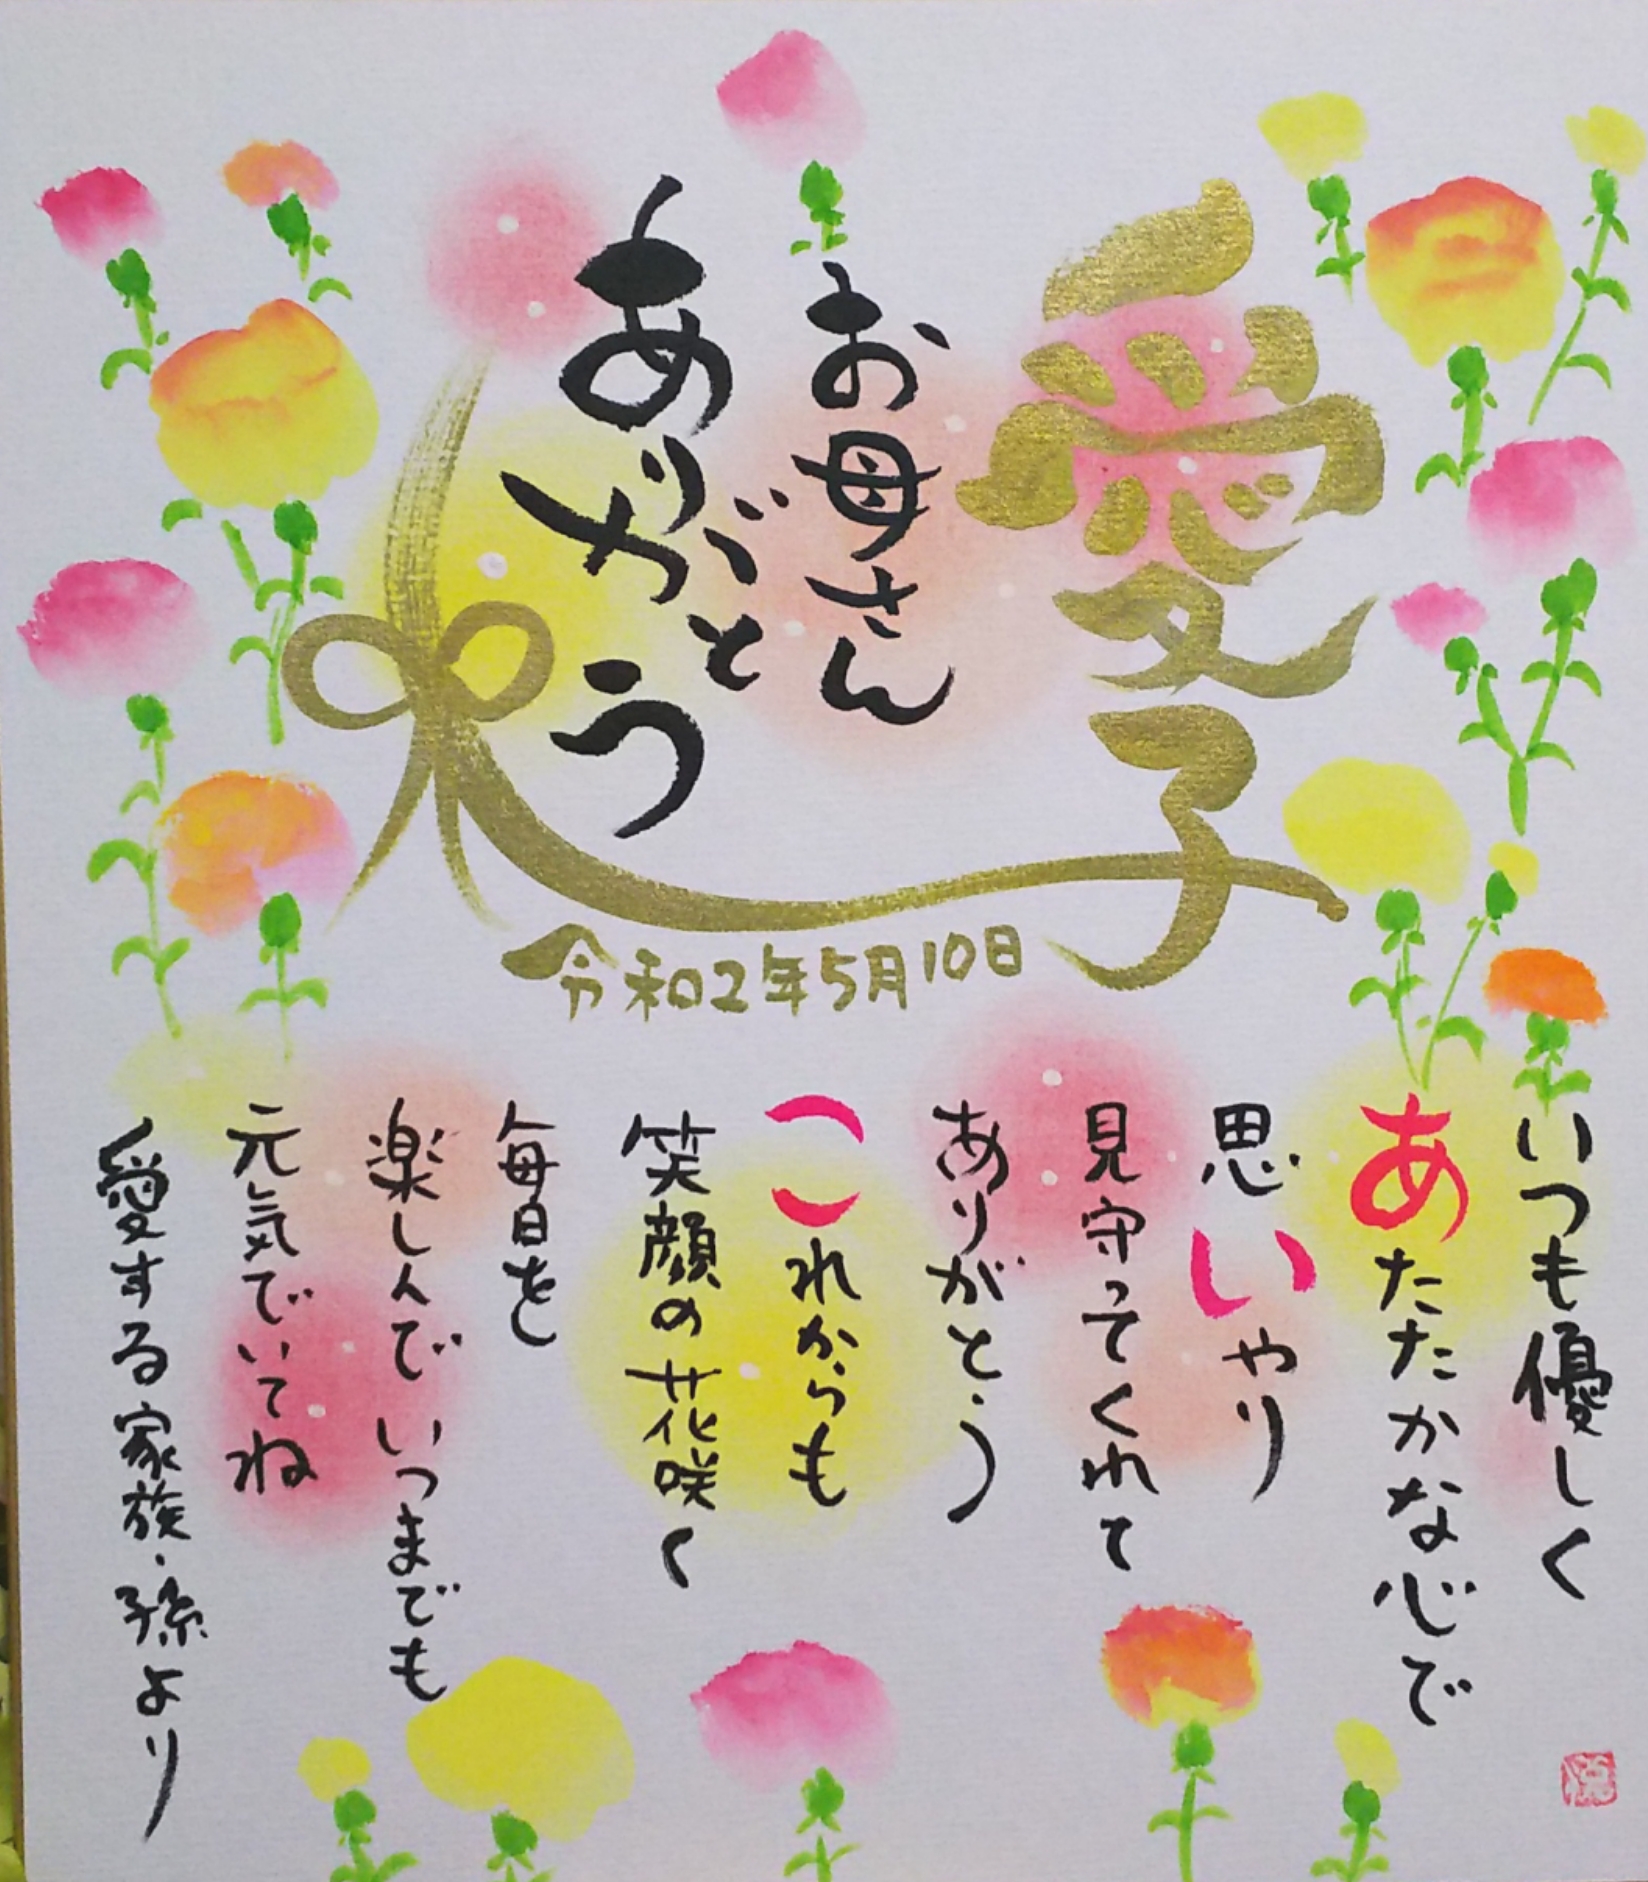 愛子
お母さん
ありがとう
令和2年5月10日
いつも優しく
あたたかな心で
思いやり
見守ってくれて
ありがとう
これからも
笑顔の花咲く
毎日を
楽しんでいつまでも
元気でいてね
愛する家族・孫より